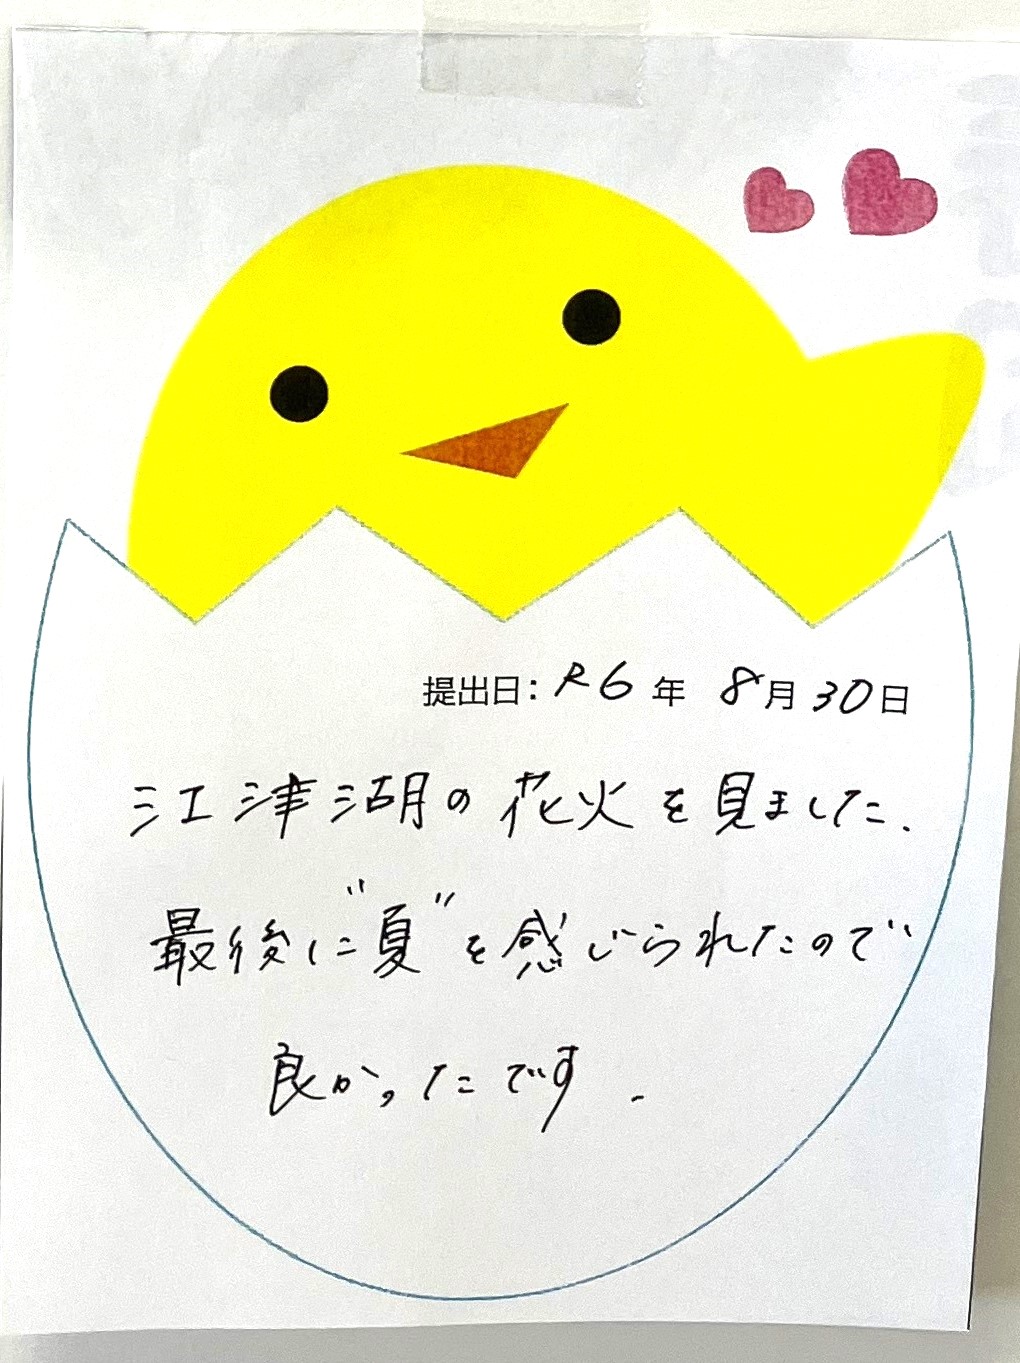 提出日: R6年 8月30日
江津湖の花火を見ました.
最後に"夏"を感じられたので
良かったです.